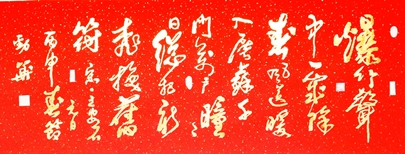 爆竹聲
中一歲除
春風送暖
入屠蘇千
門萬戶曈〻
日總把新
桃換舊
符宋王安石元日
丙申春節